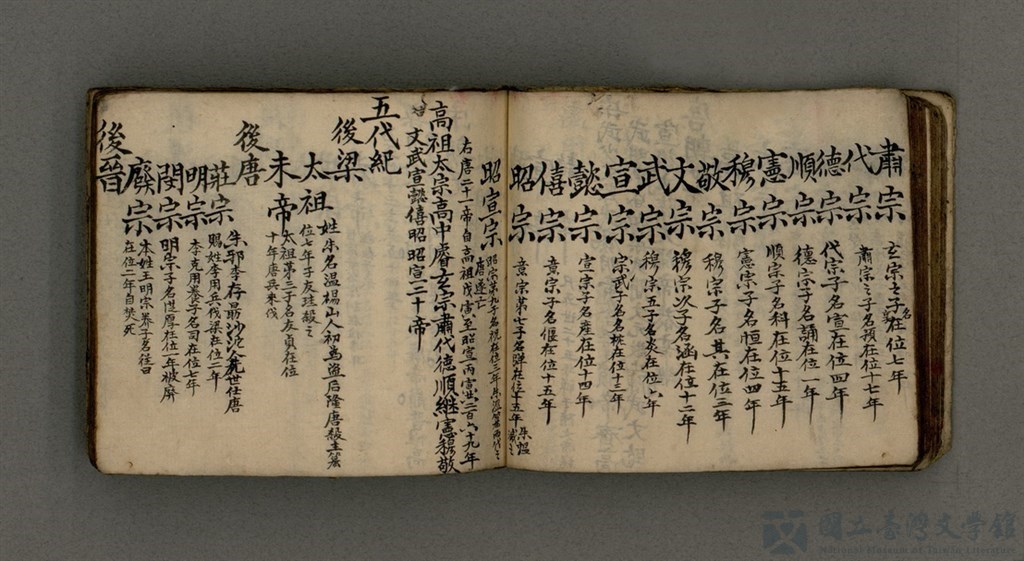 肅宗 玄宗之子名在位七年
代宗 肅宗之子名預在位十七年
德宗 代宗子名宣在位四年
順宗 德宗子名誦在位一年
憲宗 順宗子名科在位十五年
穆宗 憲宗子名恒在位四年
敬宗 穆宗子名其在位三年
文宗 穆宗次子名涵在位十二年
武宗 穆宗五子名炎在位六年
宣宗 宗武子名名忱在位十三年
懿宗 宣宗子名漼在位十四年
僖宗 意宗子名偃在位十五年
昭宗 意宗第七子名曄在位十五年朱熅
昭宣宗 昭宗第九子名祝在位三年 唐遂亡
右唐二十一帝自高祖戊寅至昭宣丙寅共二百八十九年
高祖太宗高中睿玄宗肅代德順継憲穆敬
文武宣懿僖昭昭宣二十帝
五代紀
後梁
太祖 姓朱名温楊山人初為盜后隆唐
位七年子友珪殺之
末帝 太祖第三子名友貞在位
十年唐兵来伐
後唐
莊宗 朱邪李存勗沙沱人先世在唐
賜姓李用兵伐梁在位二年
明宗 李克用養子名司在位七年
閔宗 明宗子名從厚在位一年被廃
廢宗 本姓王明宗养子名從曰
在位二年自焚死
後晉
國立臺灣文學館
National Museum of Taiwan Literature